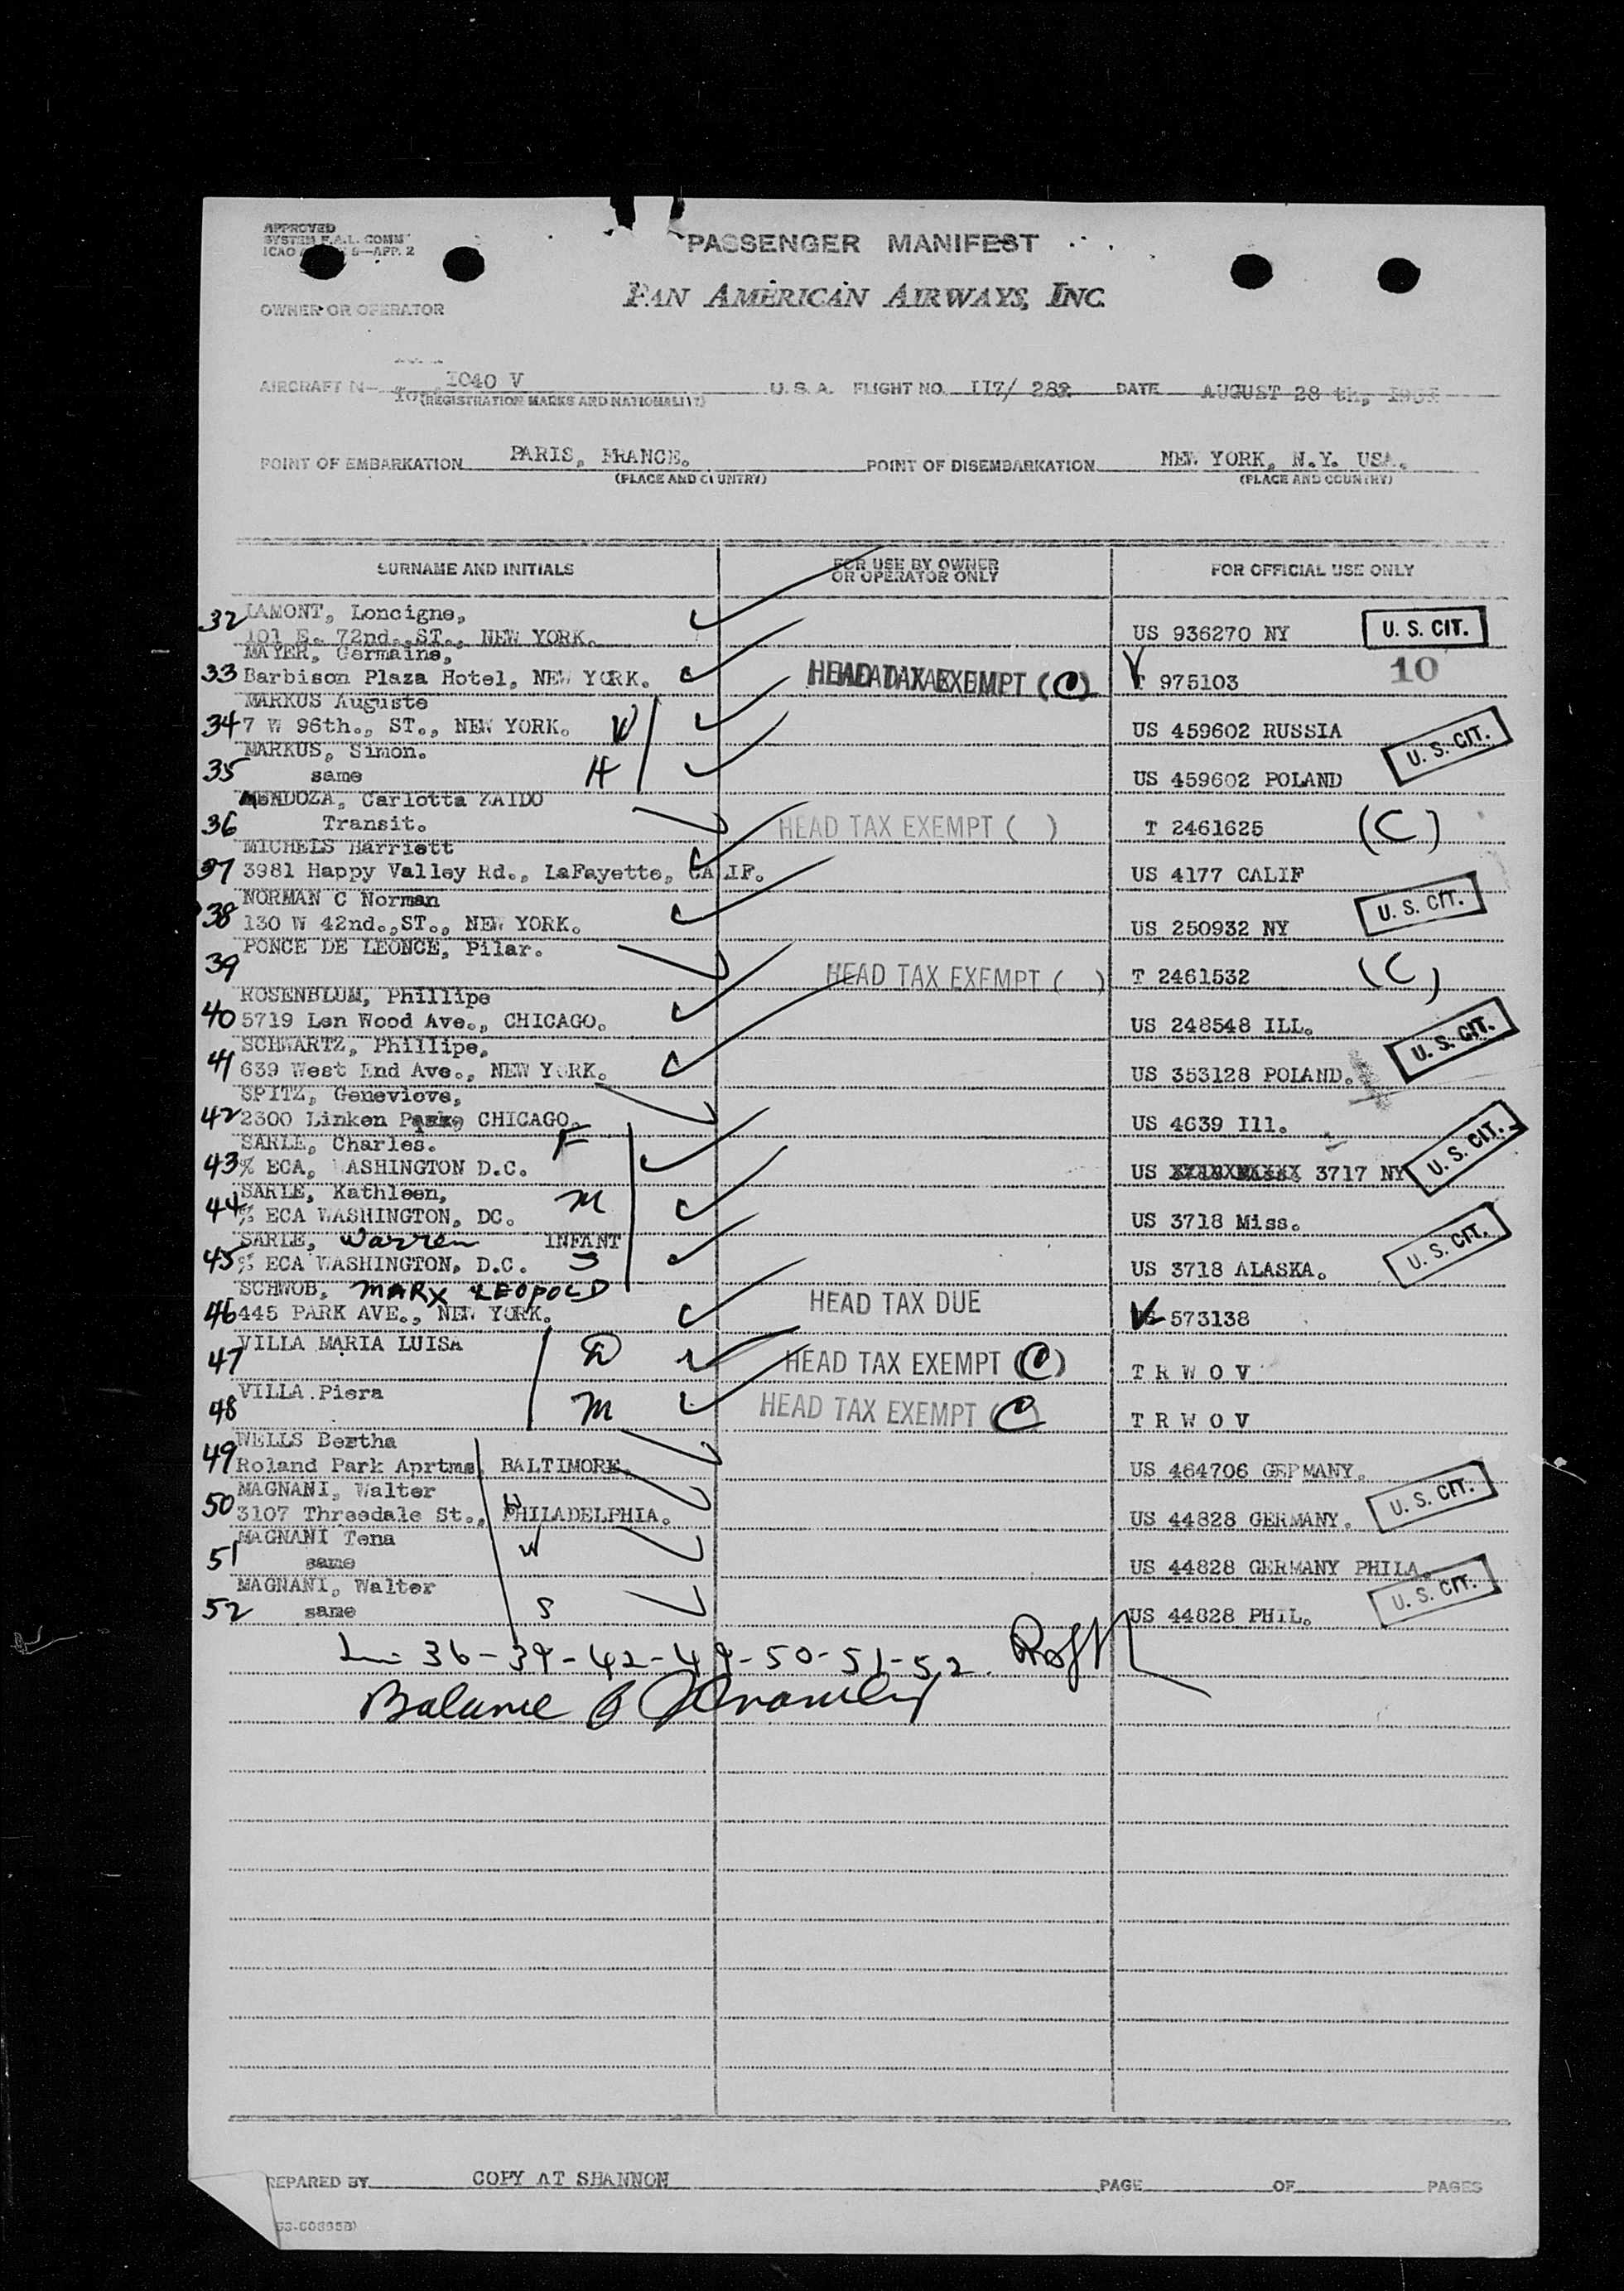 APPROVED
SYSTEM F.A.L. COMM
ICAO 8—APP. 2
PASSENGER MANIFEST
PAN AMERICAN AIRWAYS, INC
OWNER OR OPERATOR
AIRCRAFT N- 1040 V U. S. A. FLIGHT NO. 117/ 282 DATE AUGUST 28 th, 1951
(REGISTRATION MARKS AND NATIONALITY)
POINT OF EMBARKATION PARIS, FRANCE. POINT OF DISEMBARKATION NEW YORK, N.Y. USA.
(PLACE AND COUNTRY) (PLACE AND COUNTRY)
SURNAME AND INITIALS FOR USE BY OWNER OR OPERATOR ONLY FOR OFFICIAL USE ONLY
32 LAMONT, Loncigne,
101 E. 72nd.,ST., NEW YORK. US 936270 NY U. S. CIT.
MAYER, Germaine,
33 Barbison Plaza Hotel, NEW YORK. HEAD TAX EXEMPT (C) 975103 10
MARKUS Auguste
34 7 W 96th., ST., NEW YORK. W US 459602 RUSSIA
MARKUS, Simon.
35 same H US 459602 POLAND U. S. CIT.
MENDOZA, Carlotta ZAIDO
36 Transit. HEAD TAX EXEMPT ( ) T 2461625 (C)
MICHELS Harriett
37 3981 Happy Valley Rd., LaFayette, CALIF. US 4177 CALIF
NORMAN C Norman
38 130 W 42nd.,ST., NEW YORK. US 250932 NY U. S. CIT.
PONCE DE LEONCE, Pilar.
39 HEAD TAX EXEMPT ( ) T 2461532 (C)
ROSENBLUM, Phillipe
40 5719 Len Wood Ave., CHICAGO. US 248548 ILL.
SCHWARTZ, Phillipe,
41 639 West End Ave., NEW YORK. US 353128 POLAND. U. S. CIT.
SPITZ, Genevieve,
42 2300 Linken Park, CHICAGO. US 4639 Ill.
SARLE, Charles. F
43 % ECA, WASHINGTON D.C. US 3717 NY U. S. CIT.
SARLE, Kathleen,
44 % ECA WASHINGTON, DC. M US 3718 Miss.
SARLE, Warren INFANT
45 % ECA WASHINGTON, D.C. S US 3718 ALASKA. U. S. CIT.
SCHWOB, MARX LEOPOLD
46 445 PARK AVE., NEW YORK. HEAD TAX DUE 573138
47 VILLA MARIA LUISA D HEAD TAX EXEMPT (C) T R W O V
48 VILLA Piera M HEAD TAX EXEMPT (C) T R W O V
49 WELLS Bertha
Roland Park Aprtms, BALTIMORE. US 464706 GERMANY.
MAGNANI, Walter
50 3107 Threedale St., PHILADELPHIA. H US 44828 GERMANY. U. S. CIT.
MAGNANI Tena
51 same W US 44828 GERMANY PHILA.
MAGNANI, Walter
52 same S US 44828 PHIL. U. S. CIT.
36-39-42-49-50-51-52.
Balance
PREPARED BY COPY AT SHANNON PAGE OF PAGES